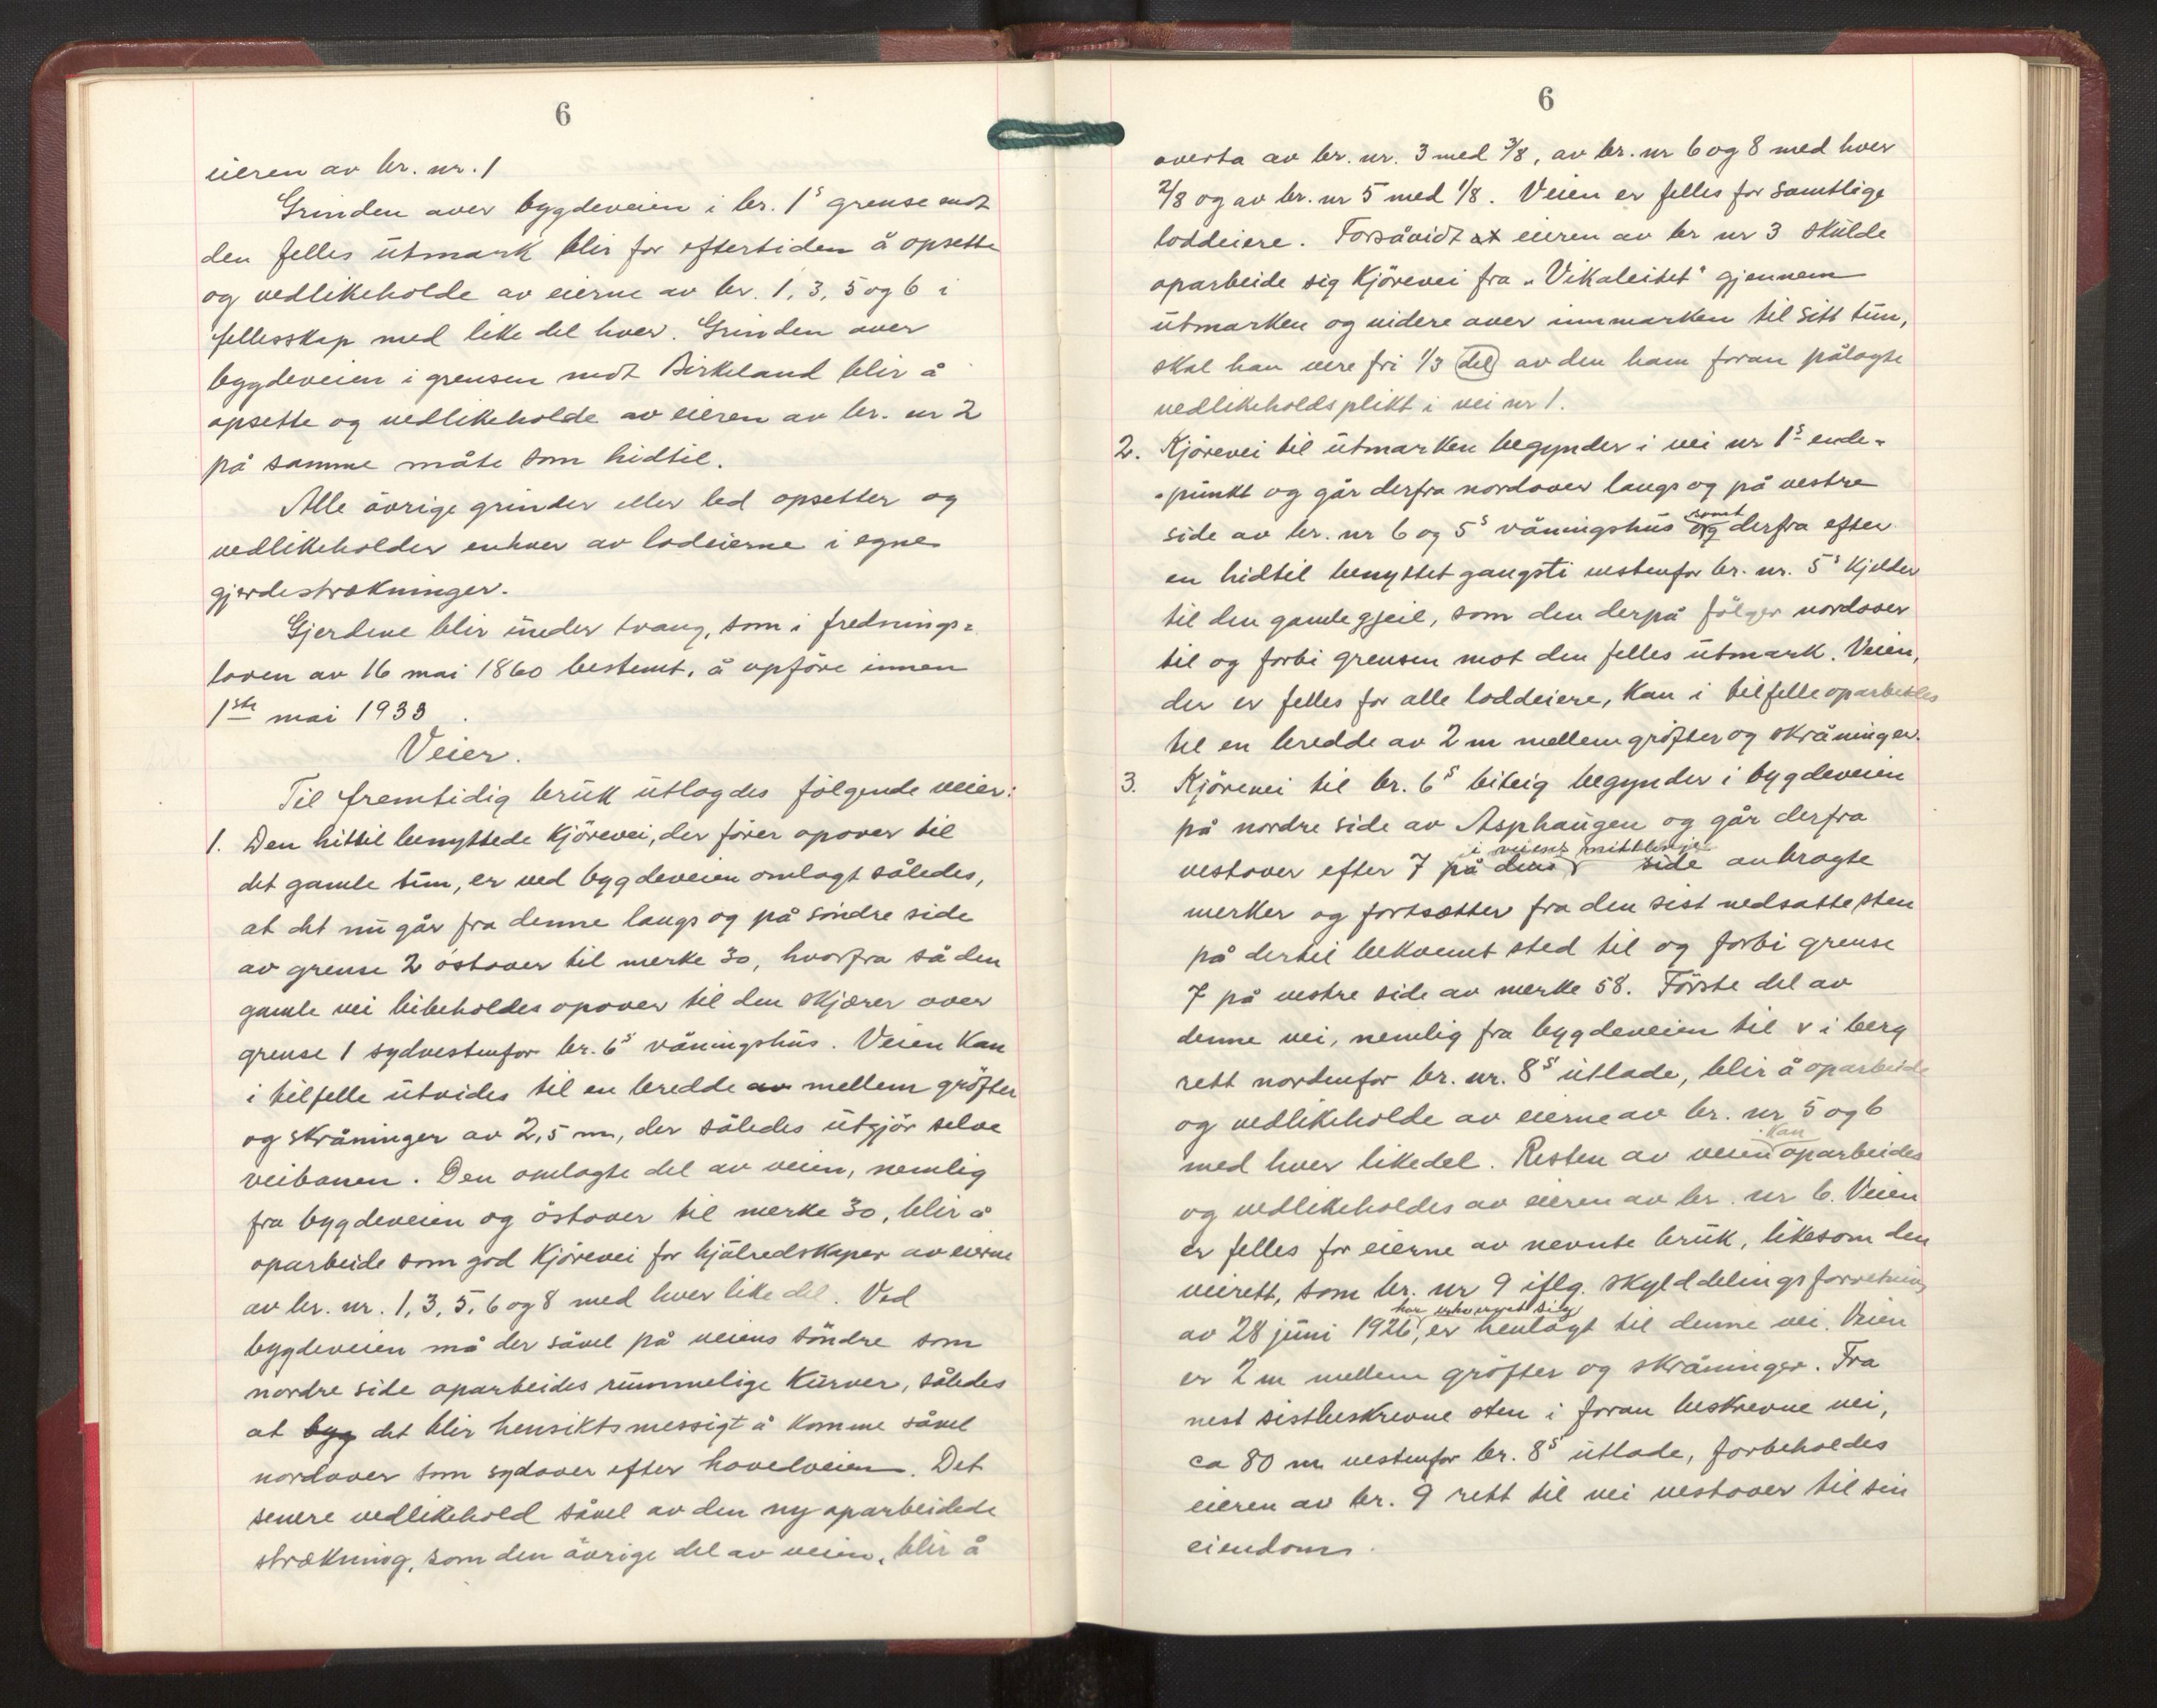 6
eieren av br. nr. 1
Grinden over bygdeveien i br. 1s grense mot
den felles utmark blir for eftertiden å opsette
og vedlikeholde av eierne av br. 1, 3, 5 og 6 i
fellesskap med like del hver. Grinden over
bygdeveien i grensen mot Birkeland blir å
opsette og vedlikeholde av eieren av br. nr 2
på samme måte som hidtil.
Alle övrige grinder eller led opsetter og
vedlikeholder enhver av lodeierne i egne
gjerdestrekninger.
Gjerdene blir under tvang, som i frednings=
loven av 16 mai 1860 bestemt, å opföre innen
1ste mai 1933.
Veier.
Til fremtidig bruk utlagdes fölgende veier:
1. Den hittil benyttede Kjörevei, der förer opover til
det gamle tun, er ved bygdeveien omlagt således,
at det nu går fra denne langs og på söndre side
av grense 2 östover til merke 30, hvorfra så den
gamle vei bibeholdes opover til den skjærer over
grense 1 sydvestenfor br. 6s våningshus. Veien Kan
i tilfelle utvides til en bredde av mellem gröfter
og skråninger av 2,5 m, der således utgjör selve
veibanen. Den omlagte del av veien, nemlig
fra bygdeveien og östover til merke 30, blir å
oparbeide som god Kjörevei for hjulredskaper av eierne
av br. nr. 1, 3, 5, 6 og 8 med hver like del. Ved
bygdeveien må der såvel på veiens söndre som
nordre side oparbeides rummelige Kurver, således
at byg det blir hensiktsmessigt å Komme såvel
nordover som sydover efter hovedveien. Det
senere vedlikehold såvel av den ny oparbeidede
strekning, som den övrige del av veien, blir å
6
overta av br. nr. 3 med 3/8, av br. nr 6 og 8 med hver
2/8 og av br. nr 5 med 1/8. Veien er felles for samtlige
loddeiere. Forsåvidt at eieren av br nr 3 skulde
oparbeide sig Kjörevei fra "Vikaleitet" gjennem
utmarken og videre over innmarken til sitt tun,
skal han vere fri 1/3 del av den ham foran pålagte
vedlikeholdsplikt i vei nr 1.
2. Kjörevei til utmarken begynder i vei nr 1s ende-
-punkt og går derfra nordover langs og på vestre
side av br. nr 6 og 5s våningshus og samt derfra efter
en hidtil benyttet gangsti vestenfor br. nr. 5s Kjelder
til den gamle gjeil, som den derpå fölger nordover
til og forbi grensen mot den felles utmark. Veien,
der er felles for alle loddeiere, Kan i tilfelle oparbeides
til en bredde av 2 m mellem gröfter og skråninger.
3. Kjörevei til br. 6s biteig begynder i bygdeveien
på nordre side av Asphaugen og går derfra
i veiens mittlinje
vestover efter 7 på dens side anbragte
merker og fortsætter fra den sist nedsatte sten
på dertil bekvemt sted til og forbi grense
7 på vestre side av merke 58. Förste del av
denne vei, nemlig fra bygdeveien til v i berg
rett nordenfor br. nr. 8s utlade, blir å oparbeide
og vedlikeholde av eierne av br. nr 5 og 6
med hver likedel. Resten av veien kan oparbeides
og vedlikeholdes av eieren av br. nr 6. Veien
er felles for eierne av nevnte bruk, likesom den
veirett, som br. nr 9 iflg. skylddelingsforretning
har erhvervet sig
av 28 juni 1926, er henlagt til denne vei. Veien
er 2 m mellem gröfter og skråninger. Fra
nest sistbeskrevne sten i foran beskrevne vei,
ca 80 m vestenfor br. 8s utlade, forbeholdes
eieren av br. 9 rett til vei vestover til sin
eiendom.